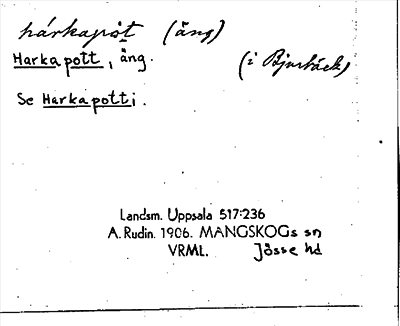 hárkapòt (äng)
Harkapott, äng.
(i Bjurbäck)
Se Harkapotti.
Landsm. Uppsala 517:236
A. Rudin. 1906. MANGSKOGs sn
VRML. Jösse hd